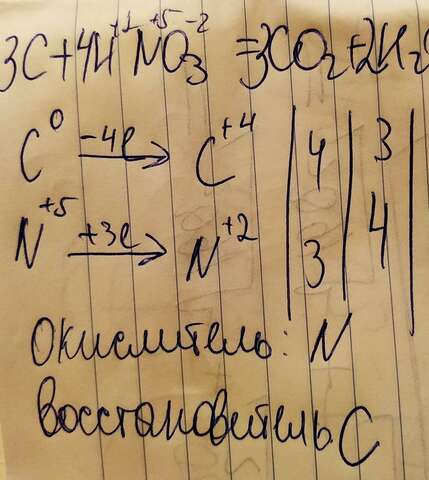 3C+4H⁺¹N⁺⁵O₃⁻²=3CO₂+2H₂O
C⁰ −4e → C⁺⁴ | 4 | 3 |
N⁺⁵ +3e → N⁺² | 3 | 4 |
Окислитель: N
Восстановитель C